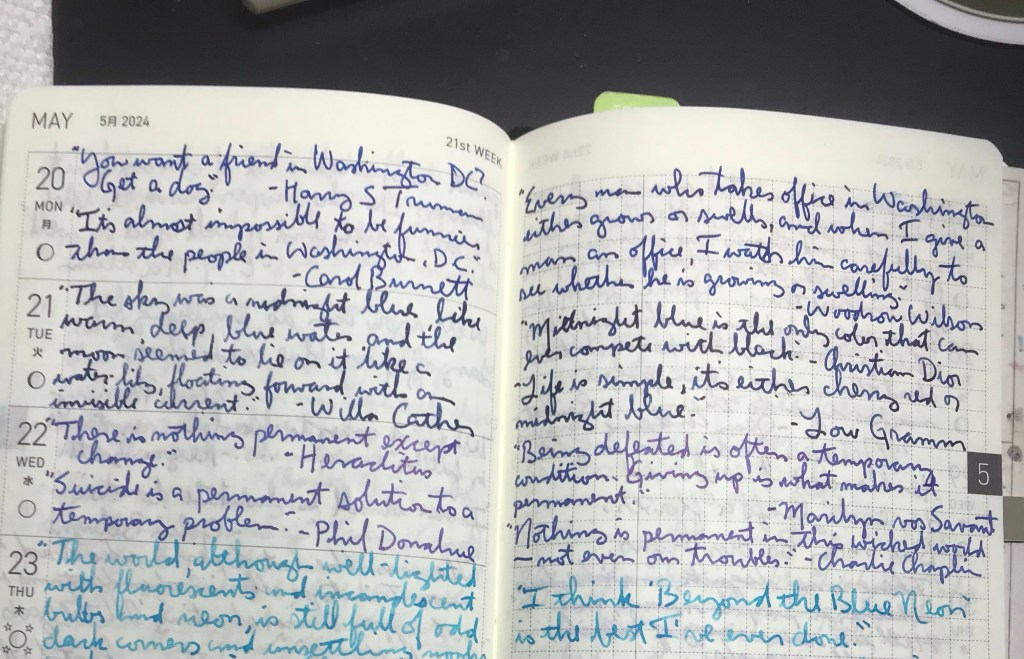 MAY 5月 2024
21st WEEK
20
MON
月
"You want a friend in Washington DC?
Get a dog" - Harry S Truman
"Its almost impossible to be funnier
than the people in Washington, DC."
- Carol Burnett
21
TUE
火
"The sky was a midnight blue, like
warm deep blue water and the
moon seemed to lie on it like a
water-lily, floating forward with an
invisible current." - Willa Cather
22
WED
水
"There is nothing permanent except
change." - Heraclitus
"Suicide is a permanent solution to a
temporary problem." - Phil Donahue
23
THU
木
"The world, although well-lighted
with fluorescents and incandescent
bulbs and neon, is still full of odd
dark corners and unsettling nooks
"Every man who takes office in Washington
either grows or swells, and when I give a
man an office, I watch him carefully to
see whether he is growing or swelling"
- Woodrow Wilson
"Midnight blue is the only color that can
ever compete with black. - Christian Dior
"Life is simple, its either cherry red or
midnight blue." - Low Gramm
"Being defeated is often a temporary
condition. Giving up is what makes it
permanent." - Marilyn vos Savant
"Nothing is permanent in this wicked world
- not even our troubles." - Charlie Chaplin
5
"I think 'Beyond the Blue Neon'
is the best I've ever done."